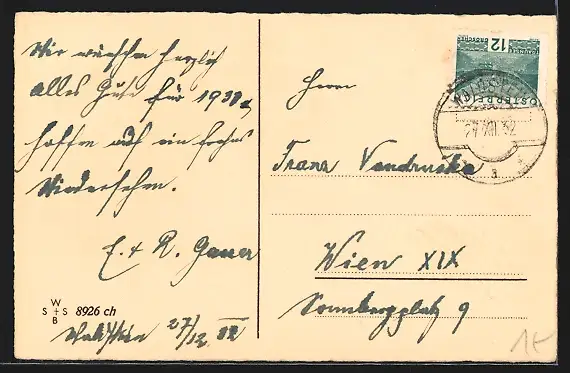 Wir wünschen herzlich
alles Gute für 1933 u.
hoffen auf ein frohes
Wiedersehen.
E. + R. Gauer
W
S + S 8926 ch
B
27/12 32
12
GROSCHEN
ÖSTERREICH
27 XII 32
Herrn
Franz Vondruska
Wien XIX
Sonnbergplatz 9
1€